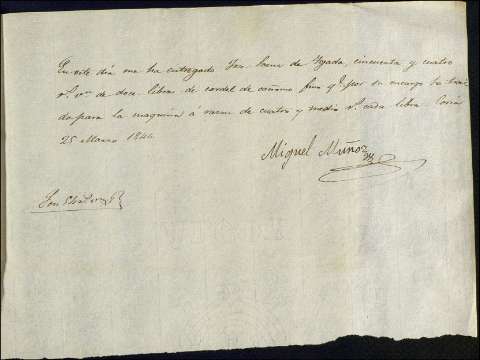 En este dia me ha entregado Jose Saenz de Tejada, cincuenta y cuatro
rs. vn. de doce libras de cordel de cañamo fino q.e por su encargo he traí
do para la maquina á razon de cuatro y medio rs. cada libra. Coria
25 Marzo 1844
Miguel Muñoz
Son